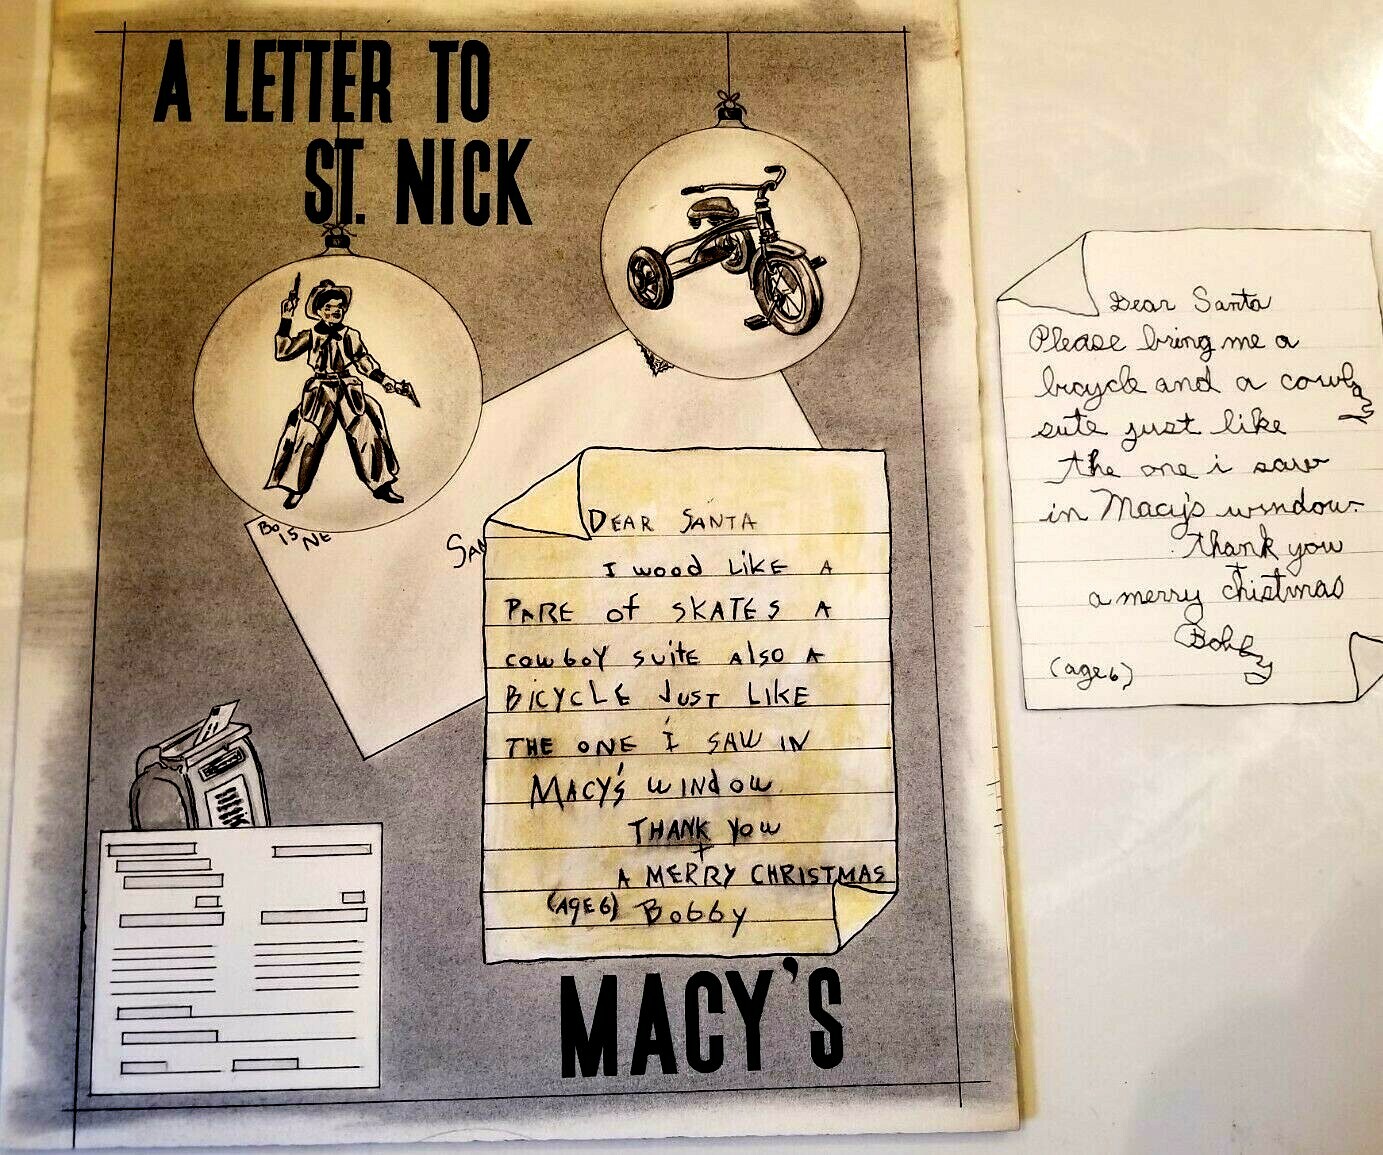 A LETTER TO
ST. NICK
BOISNE
SAN
DEAR SANTA
I WOOD LIKE A
PARE OF SKATES A
COWBOY SUITE ALSO A
BICYCLE JUST LIKE
THE ONE I SAW IN
MACY'S WINDOW
THANK YOU
+
A MERRY CHRISTMAS
(AGE 6) BOBBY
MACY'S
Dear Santa
Please bring me a
bicycle and a cowboy
sute just like
the one i saw
in Macy's window.
thank you
+
a merry chistmas
Bobby
(age 6)